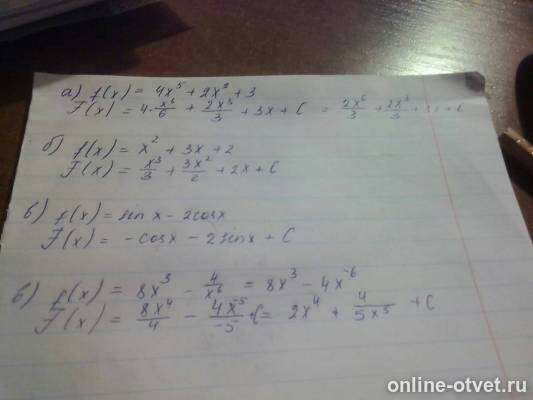 а) f(x) = 4x⁵ + 2x² + 3
F(x) = 4·x⁶/6 + 2x³/3 + 3x + C = 2x⁶/3 + 2x³/3 + 3x + C
б) f(x) = x² + 3x + 2
F(x) = x³/3 + 3x²/2 + 2x + C
в) f(x) = sin x - 2cosx
F(x) = -cosx - 2sinx + C
в) f(x) = 8x³ - 4/x⁶ = 8x³ - 4x⁻⁶
F(x) = 8x⁴/4 - 4x⁻⁵/-5 + C = 2x⁴ + 4/5x⁵ + C
online-otvet.ru